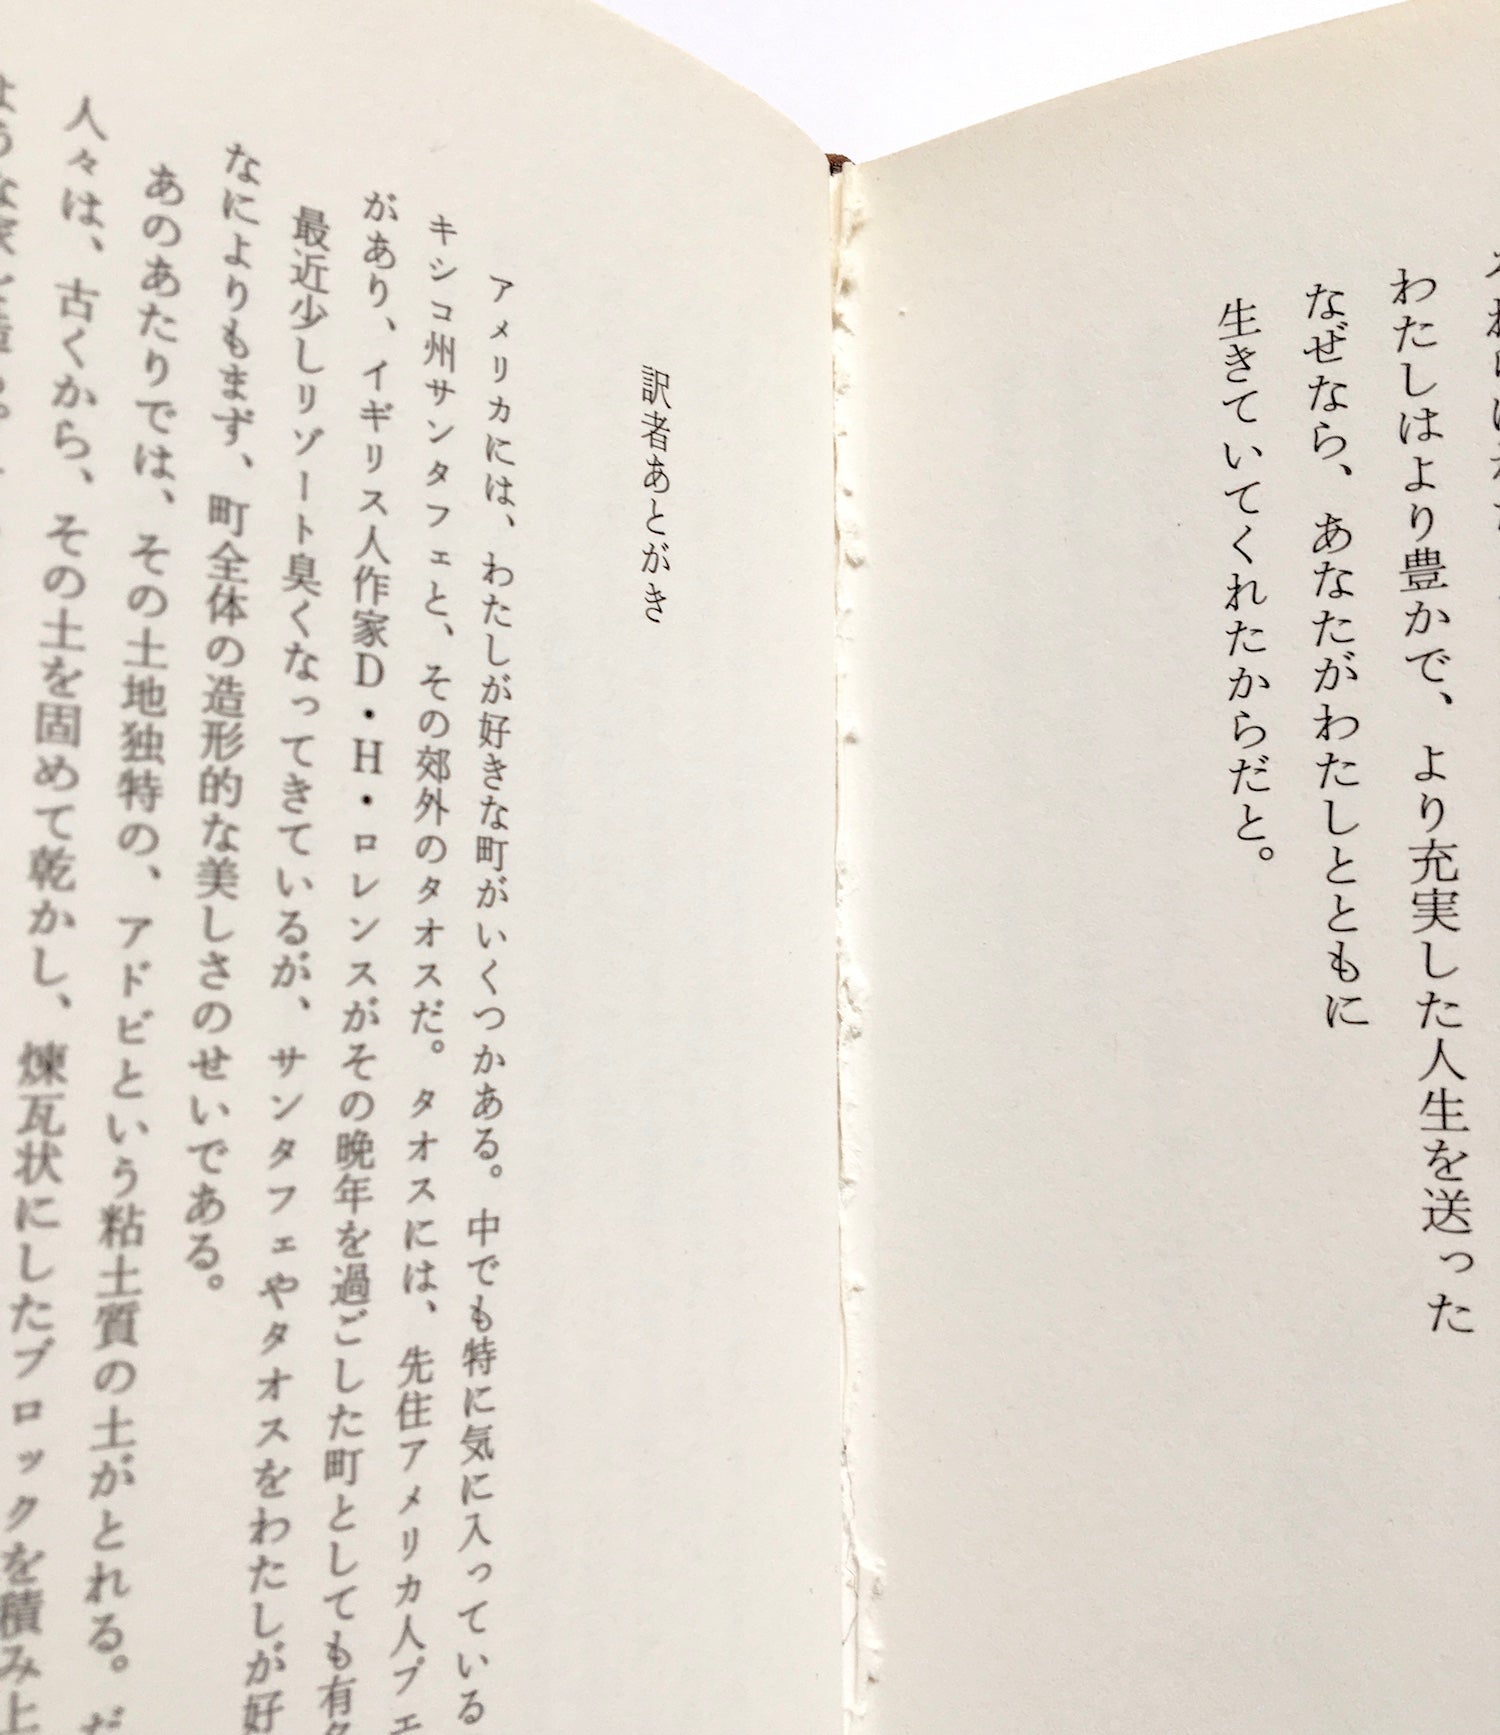 わたしはより豊かで、より充実した人生を送った
なぜなら、あなたがわたしとともに
生きていてくれたからだと。
訳者あとがき
アメリカには、わたしが好きな町がいくつかある。中でも特に気に入っている
キシコ州サンタフェと、その郊外のタオスだ。タオスには、先住アメリカ人プエ
があり、イギリス人作家D・H・ロレンスがその晩年を過ごした町としても有名
最近少しリゾート臭くなってきているが、サンタフェやタオスをわたしが好
なによりもまず、町全体の造形的な美しさのせいである。
あのあたりでは、その土地独特の、アドビという粘土質の土がとれる。だ
人々は、古くから、その土を固めて乾かし、煉瓦状にしたブロックを積み上
ような家